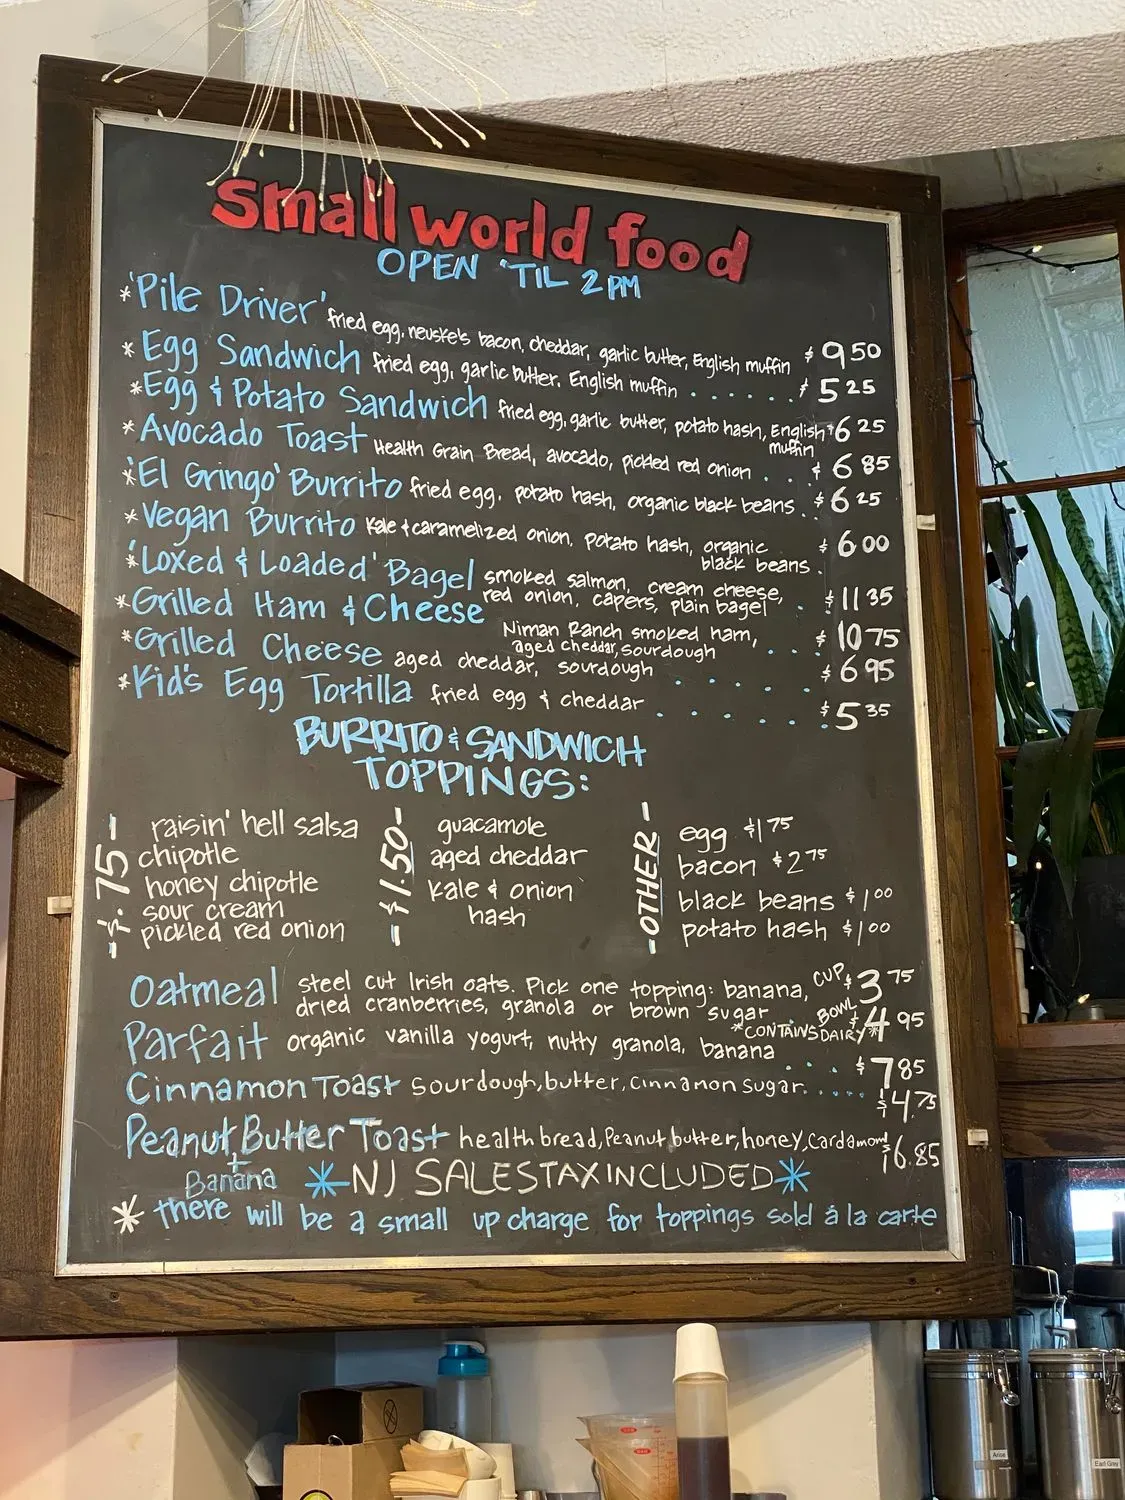 small world food
OPEN 'TIL 2 PM
* 'Pile Driver' fried egg, neuske's bacon, cheddar, garlic butter, English muffin $9 50
* Egg Sandwich fried egg, garlic butter, English muffin . . . . . . $5 25
* Egg & Potato Sandwich fried egg, garlic butter, potato hash, English muffin $6 25
* Avocado Toast Health Grain Bread, avocado, pickled red onion . . $6 85
* 'El Gringo' Burrito fried egg, potato hash, organic black beans . $6 25
* Vegan Burrito Kale & caramelized onion, potato hash, organic black beans . $6 00
* 'Loxed & Loaded' Bagel smoked salmon, cream cheese,
red onion, capers, plain bagel . $11 35
* Grilled Ham & Cheese Niman Ranch smoked ham,
aged cheddar, sourdough . . . $10 75
* Grilled Cheese aged cheddar, sourdough . . . . . $6 95
* Kid's Egg Tortilla fried egg & cheddar . . . . . . $5 35
BURRITO & SANDWICH
TOPPINGS:
- $.75 -
raisin' hell salsa
chipotle
honey chipotle
sour cream
pickled red onion
- $1.50 -
guacamole
aged cheddar
kale & onion
hash
- OTHER -
egg $1 75
bacon $2 75
black beans $1 00
potato hash $1 00
Oatmeal steel cut Irish oats. Pick one topping: banana, CUP $3 75
dried cranberries, granola or brown sugar . . BOWL $4 95
*CONTAINS DAIRY*
Parfait organic vanilla yogurt, nutty granola, banana . . . $7 85
Cinnamon Toast sourdough, butter, cinnamon sugar..... $4.75
Peanut Butter Toast health bread, Peanut butter, honey, cardamom $6.85
+
Banana
* NJ SALES TAX INCLUDED *
* there will be a small up charge for toppings sold á la carte
Anise
Earl Grey